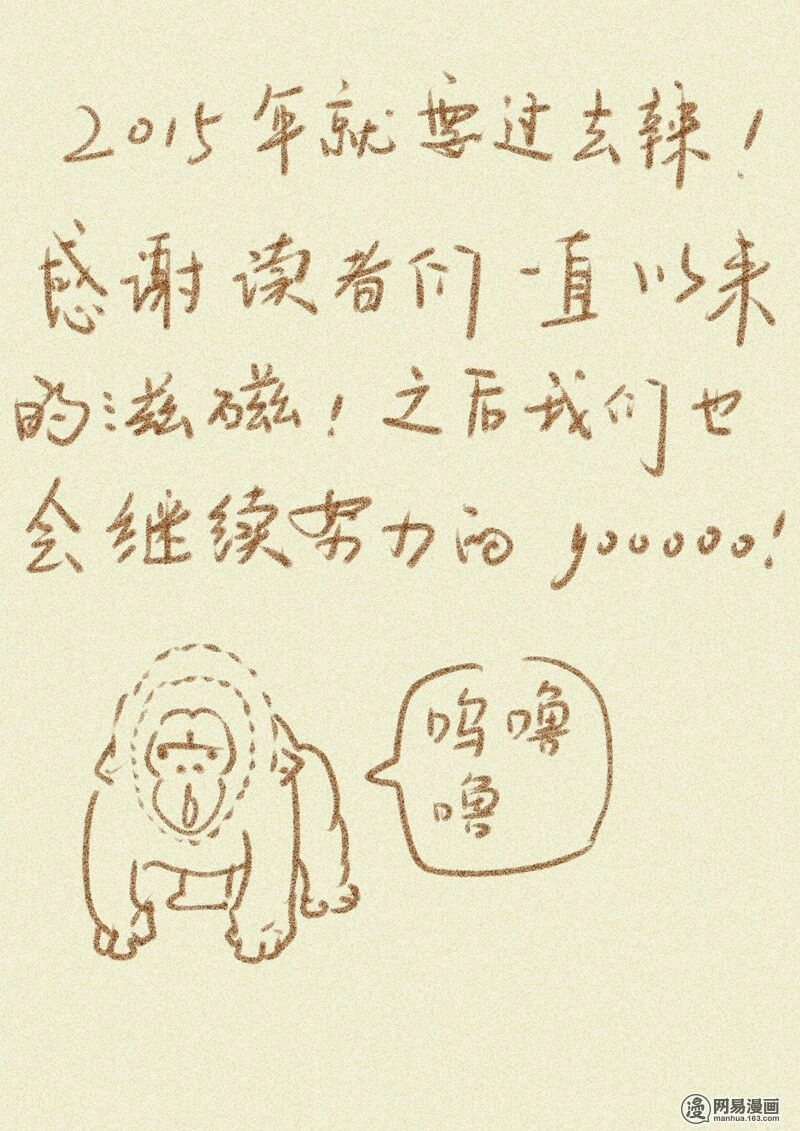 2015年就要过去辣！
感谢读者们一直以来
的滋磁！之后我们也
会继续努力的 yooooo!
呜噜
噜
网易漫画
manhua.163.com